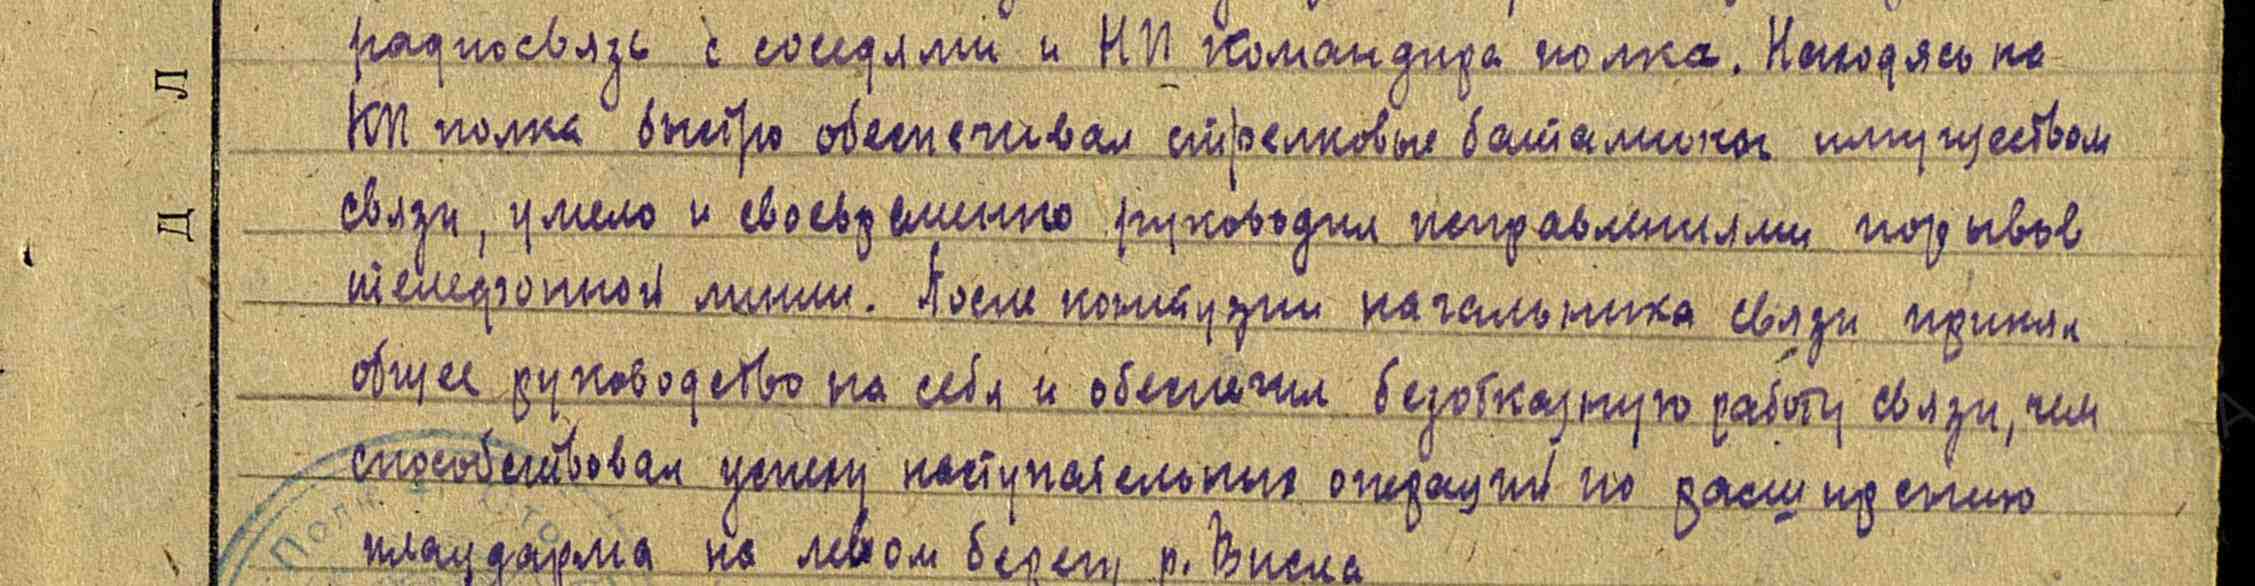 радиосвязь с соседями и НП командира полка. Находясь на
КП полка быстро обеспечивал стрелковые батальоны имуществом
связи, умело и своевременно руководил исправлениями порывов
телефонной линии. После контузии начальника связи принял
общее руководство на себя и обеспечил безотказную работу связи, чем
способствовал успеху наступательных операций по расширению
плацдарма на левом берегу р. Висла
Л
Д